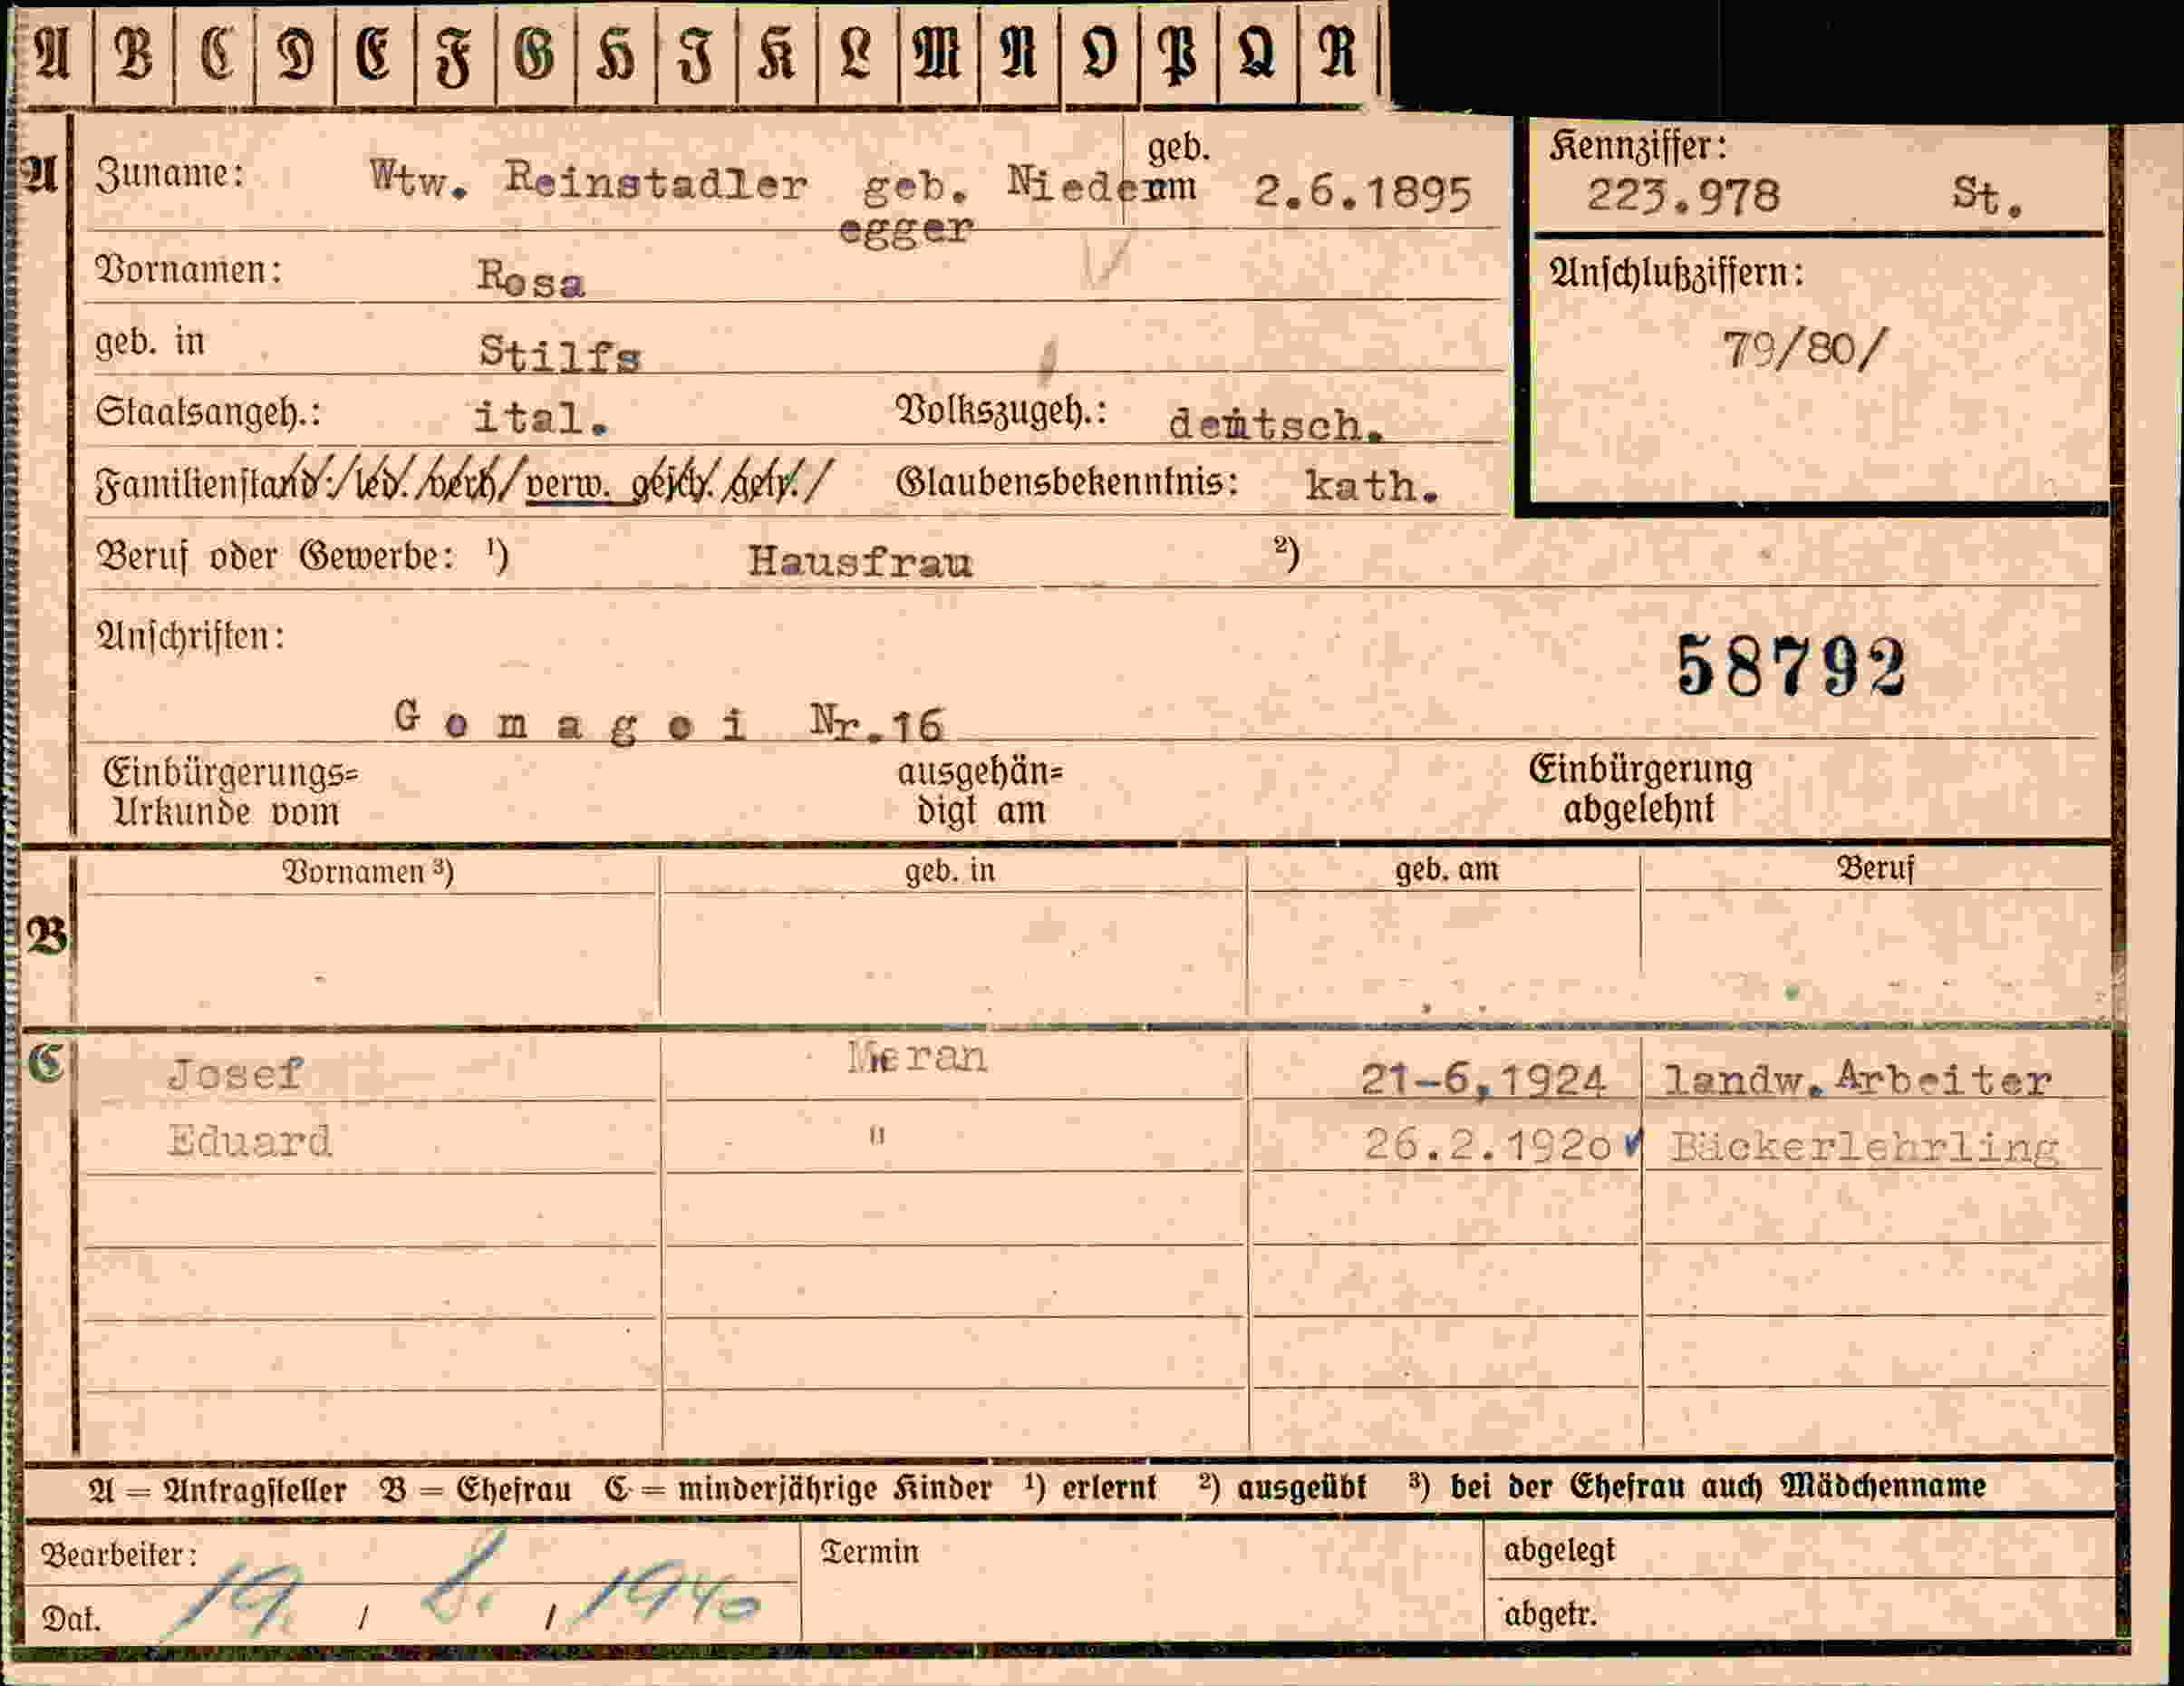 A B C D E F G H I K L M N O P Q R
A Zuname: Wtw. Reinstadler geb. Nieder
egger
geb. am 2.6.1895
Kennziffer:
223.978 St.
Vornamen: Rosa
Anschlußziffern:
79/80/
geb. in Stilfs
Staatsangeh.: ital. Volkszugeh.: deutsch.
Familienstand: led. verh. verw. gesch. getr. Glaubensbekenntnis: kath.
Beruf oder Gewerbe: ¹) Hausfrau ²)
Anschriften:
58792
Gomagoi Nr.16
Einbürgerungs= ausgehän= Einbürgerung
Urkunde vom digt am abgelehnt
Vornamen ³) geb. in geb. am Beruf
B
C Josef Meran 21-6,1924 landw. Arbeiter
Eduard " 26.2.1920 Bäckerlehrling
A = Antragsteller B = Ehefrau C = minderjährige Kinder ¹) erlernt ²) ausgeübt ³) bei der Ehefrau auch Mädchenname
Bearbeiter: Termin abgelegt
Dat. 19. / 8. / 1940 abgetr.